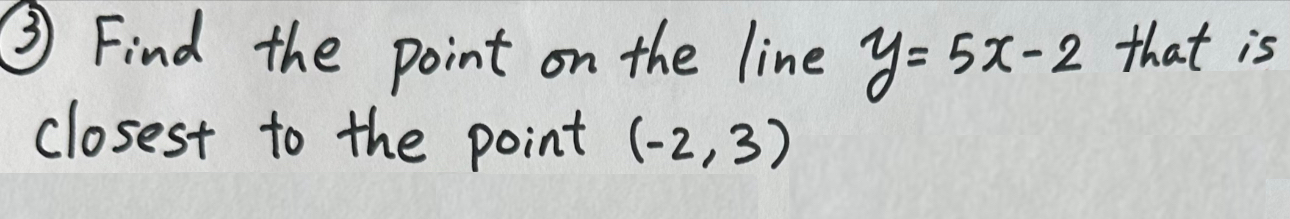 ③ Find the point on the line y = 5x - 2 that is
closest to the point (-2, 3)